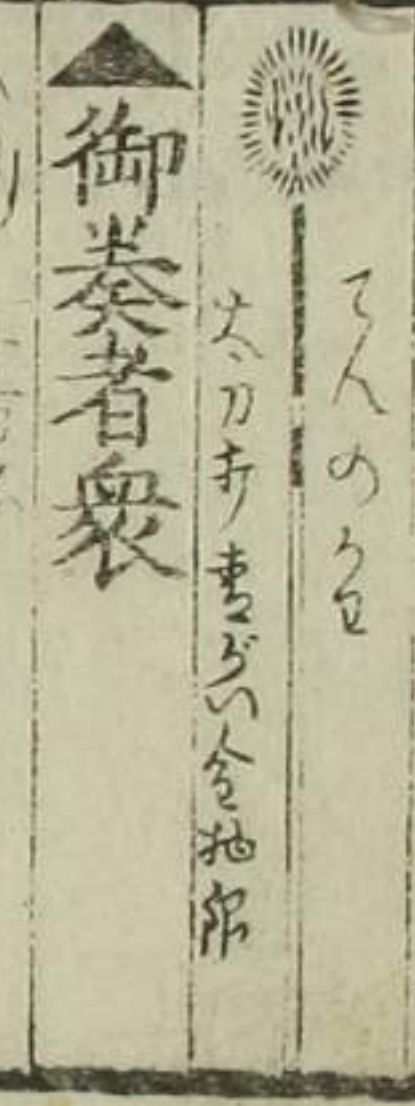 てんのかわ
太刀打青がい金物銀
御奏者衆